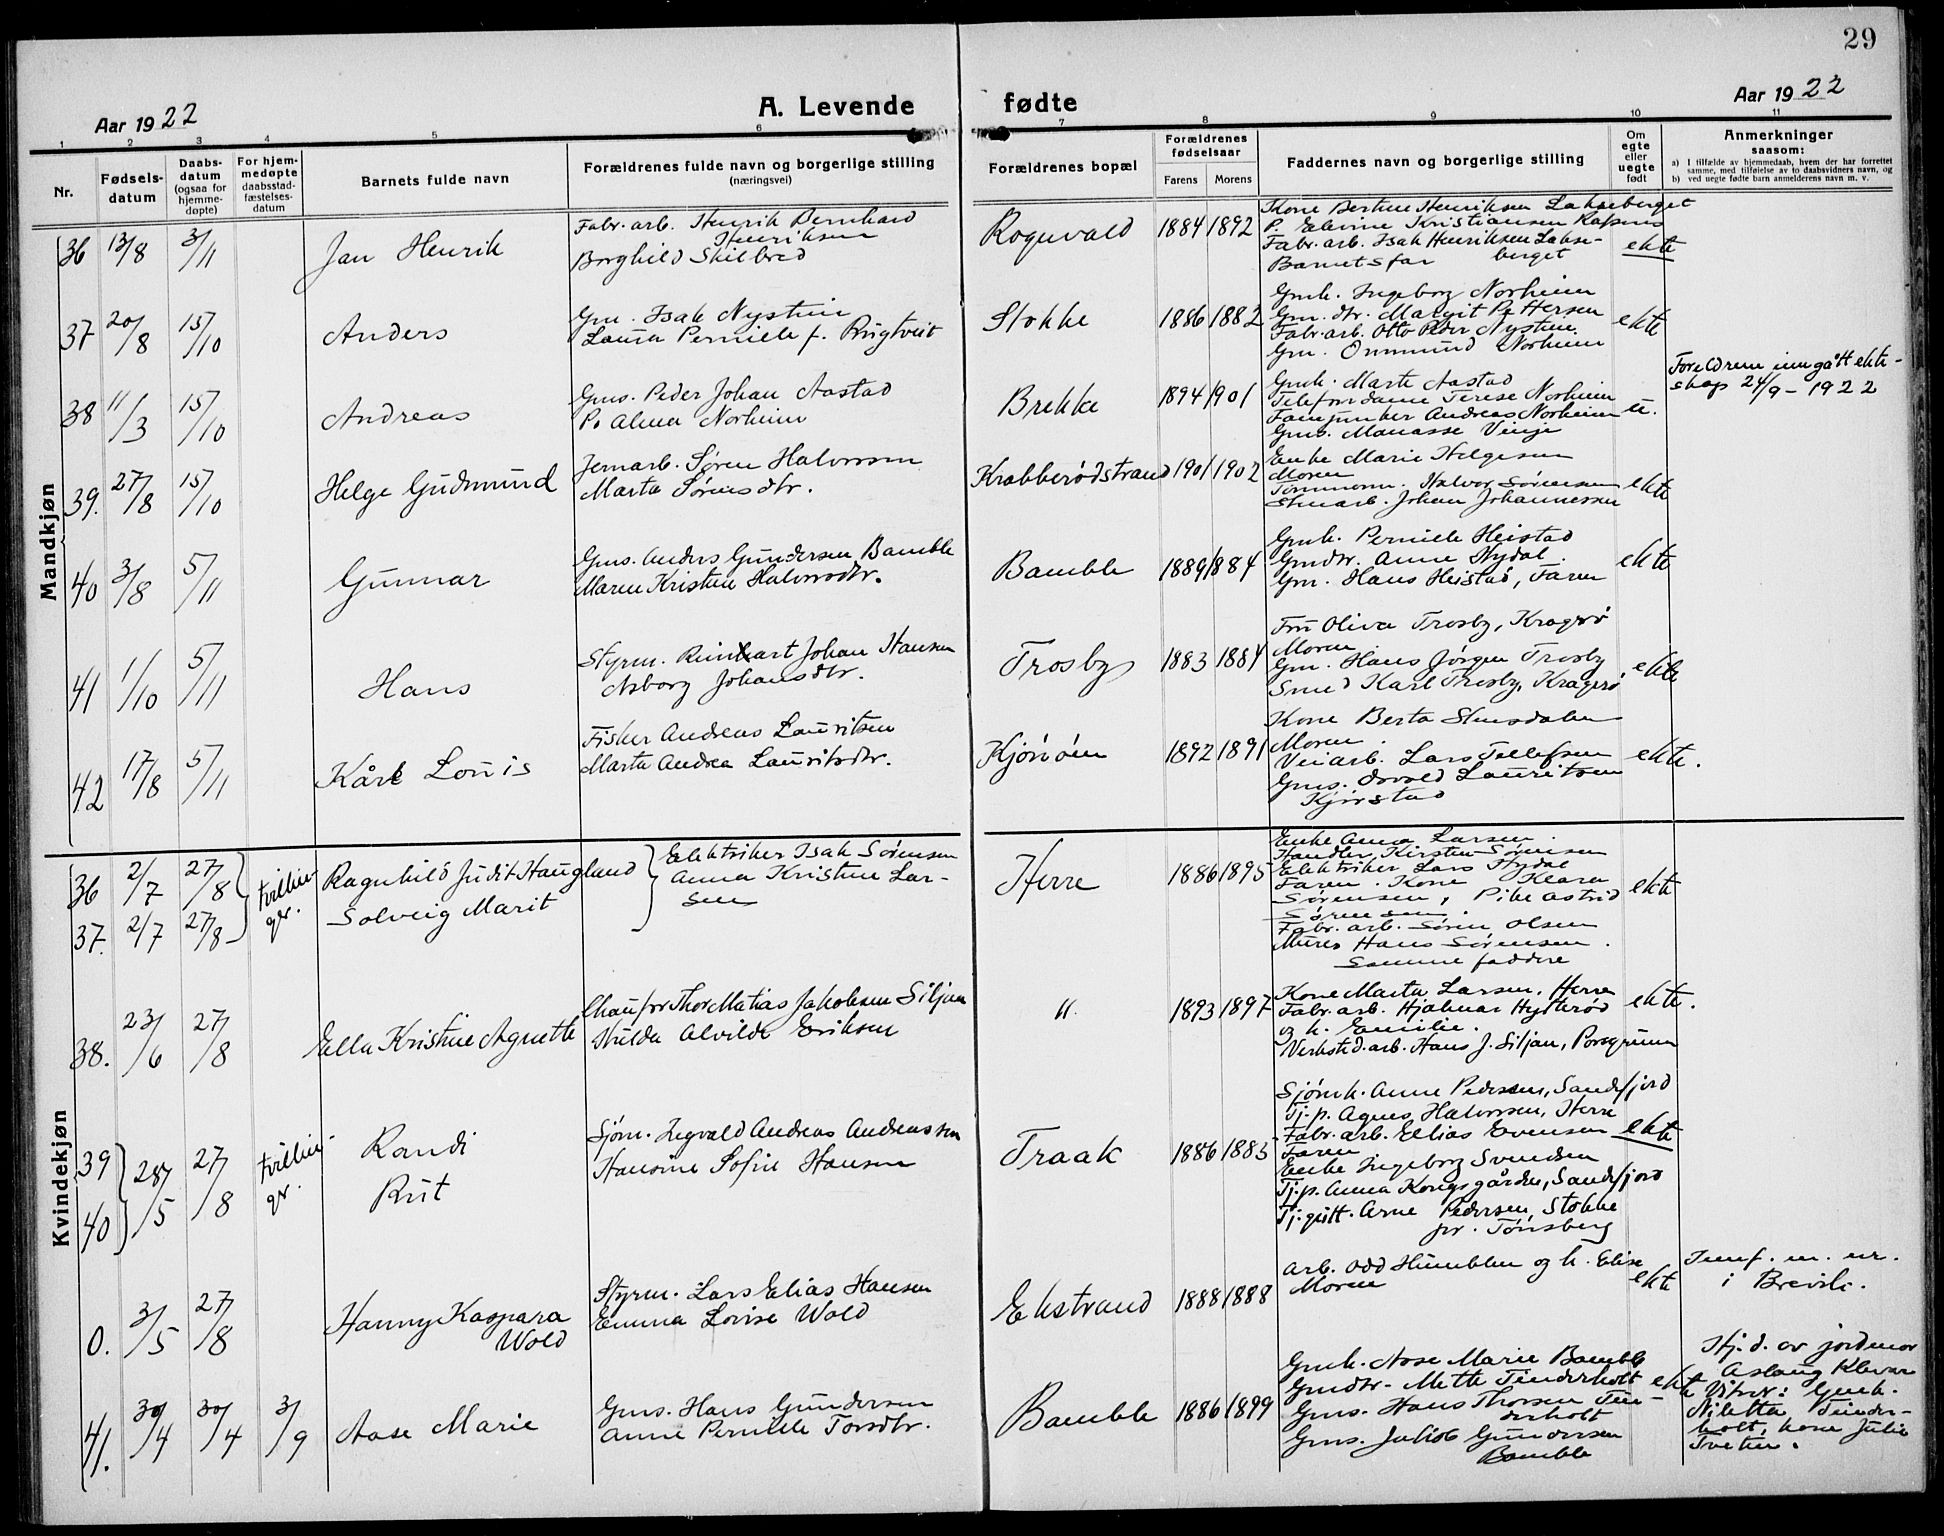 29
Aar 1922
A. Levende fødte
Aar 1922
1 2 3 4 5 6 7 8 9 10 11
Nr.
Fødsels-
datum
Daabs-
datum
(ogsaa for
hjemme-
døpte)
For hjem-
medøpte
daabsstad-
fæstelses-
datum
Barnets fulde navn
Forældrenes fulde navn og borgerlige stilling
(næringsvei)
Forældrenes bopæl
Forældrenes
fødselsaar
Farens Morens
Faddernes navn og borgerlige stilling
Om
egte
eller
uegte
født
Anmerkninger
saasom:
a) I tilfælde av hjemmedaab, hvem der har forrettet
samme, med tilføielse av to daabsvidners navn, og
b) ved uegte fødte barn anmelderens navn m. v.
Mandkjøn
36 13/8 3/11 Jan Henrik
Fabr. arb. Henrik Bernhard
Henriksen
Borghild Skilbred
Rognvald 1884 1892
Kone Berthe Henriksen Lakseberget
P. Elvine Kristiansen
Fabr. arb. Isak Henriksen Lakse-
berget
Barnets far
ekte
37 20/8 15/10 Anders
Gm. Isak Nystein
Laura Pernille f. Rugtveit
Stokke 1886 1882
Gmk. Ingeborg Norheim
Gm. dtr. Margit Pettersen
Fabr. arb. Otto Peder Nystein
Gm. Ommund Norheim
ekte
38 11/3 15/10 Andreas
Gms. Peder Johan Aastad
P. Alma Norheim
Brekke 1894 1901
Gmk. Marte Aastad
Telefondame Terese Norheim
Andreas Norheim
Gms. Manasse Vinje
u.
Foreldrene inngått ekte-
skap 24/9 - 1922
39. 27/8 15/10 Helge Gudmund
Jernarb. Søren Halvorsen
Marta Sørensdtr.
Krabberødstrand 1901 1902
Enke Marie Helgesen
Moren
Tømmerm. Halvor Sørensen
Stenarb. Johan Johannessen
ekte
40 3/8 5/11 Gunnar
Gms. Anders Gundersen Bamble
Maren Kristine Halvorsdtr.
Bamble 1889 1884
Gmk. Pernille Heistad
Gmdtr. Anne Hydal.
Gm. Hans Heistad, Faren
ekte
41 1/10 5/11 Hans
Styrm. Reinhart Johan Hansen
Asborg Johansdtr.
Trosby 1883 1884
Fru Oliva Trosby, Kragerø
Moren.
Gm. Hans Jørgen Trosby
Smed Karl Trosby, Kragerø
ekte
42 17/8 5/11 Kåre Louis
Fisker Andreas Lauritsen
Marta Andrea Lauritsdtr.
Kjønøen 1892 1891
Kone Berta Stensdalen
Moren.
Veiarb. Lars Tellefsen
Gms. Osvald Lauritsen
Kjørstad
ekte.
Kvindekjøn
36 2/7 27/8 Tvillin-
ger. Ragnhild Judit Haugland
37. 2/7 27/8 Solveig Marit
Elektriker Isak Sørensen
Anna Kristine Lar-
sen
Herre 1886 1895
Enke Anna Larsen.
Handler Kirsten Sørensen
Elektriker Lars Hydal
Faren. Kone Klara
Sørensen, Pike Astrid
Sørensen.
Fabr. arb. Søren Olsen
Murer Hans Sørensen.
Samme faddere
ekte
38. 23/6 27/8 Ella Kristine Agnethe
Chaufør Thor Matias Jakobsen Siljan
Hulda Alvilde Eriksen
" 1893 1897
Kone Marta Larsen, Herre
Fabr. arb. Hjalmar Hytterød
og h. Emilie.
Verksted. arb. Hans J. Siljan, Porsgrunn
ekte.
39 28/5 27/8 Tvillin-
ger. Randi
40 Rut
Sjøm. Ingvald Andreas Andreassen
Hansine Sofie Hansen
Traak 1886 1885
Sjømk. Anne Pedersen, Sandefjord
Tj. p. Agnes Halvorsen, Herre
Fabr. arb. Ellias Evensen
Faren
Enke Ingeborg Svendsen
Tj. p. Anna Kongsgården, Sandefjord
Tj. gutt. Arne Pedersen, Stokke
pr. Tønsberg
ekte
0. 3/5 27/8 Hanny Kaspara
Wold
Styrm. Lars Elias Hansen
Emma Lovise Wold
Ekstrand 1888 1888
Arb. Odd Humblen og h. Elise
Moren
ekte
Innf. m. nr.
i Brevik.
41. 30/4 30/4 3/9 Aase Marie
Gms. Hans Gundersen
Anne Pernille Torsdtr.
Bamble 1886 1899
Gmk. Aase Marie Bamble
Gmdtr. Mette Tinderholt
Gms. Hans Thorsen Tin-
derholt
Gms. Jakob Gundersen
Bamble
ekte
Hj. d. av jordmor
Aslaug Klevar
Vitner: Gmk.
Niletta Tinder-
holt, kone Julie
Tveten.